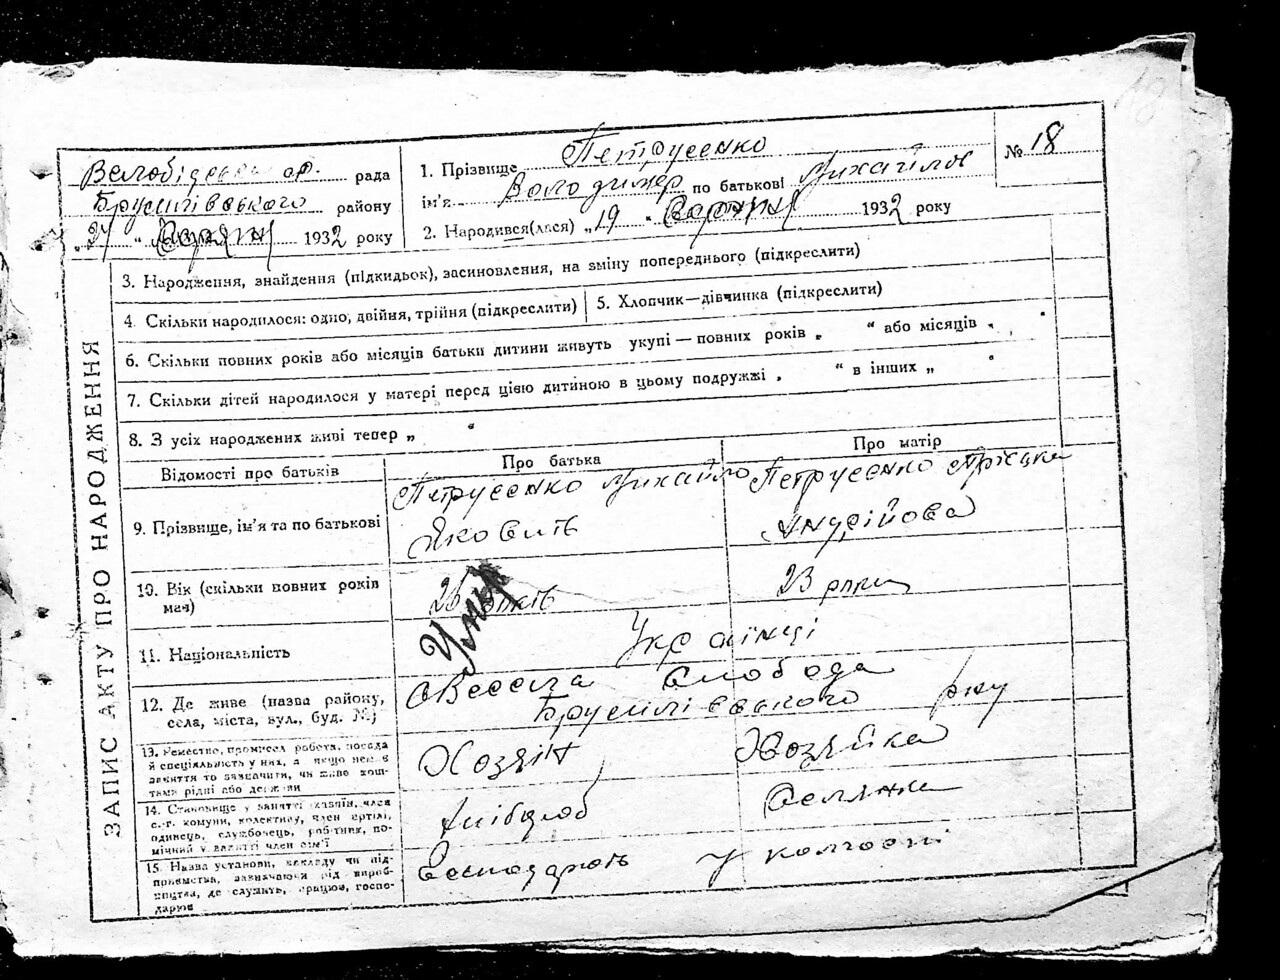 18
рада
Брусилівського району
"27" Серпня 1932 року
1. Прізвище Петрусенко
ім'я Володимер по батькові Михайлов
2. Народився(лася) "19" Серпня 1932 року
№ 18
ЗАПИС АКТУ ПРО НАРОДЖЕННЯ
3. Народження, знайдення (підкидьок), засиновлення, на зміну попереднього (підкреслити)
4. Скільки народилося: одно, двійня, трійня (підкреслити)
5. Хлопчик—дівчинка (підкреслити)
6. Скільки повних років або місяців батьки дитини живуть укупі — повних років „ “ або місяців „ “
7. Скільки дітей народилося у матері перед цією дитиною в цьому подружжі „ “ в інших „ “
8. З усіх народжених живі тепер „ “
Відомості про батьків
Про батька
Про матір
9. Прізвище, ім'я та по батькові
Петрусенко Михайло
Яковить
Петрусенко
10. Вік (скільки повних років має)
26 років
23 роки
Умер
11. Національність
Українці
12. Де живе (назва району,
села, міста, вул., буд. №)
Весела Слобода
Брусилівського р-ну
13. Ремество, промисел робота, посада
й спеціальність у них, а якщо нема
заняття то зазначити, чи живе кош-
тами рідні або держави
Хозяін
Хозяйка
14. Становище у занятті хазяїн, член
с.-г. комуни, колективу, член артілі,
одинець, службовець, робітник, по-
мічний у занятті член сім'ї
Хлібороб
Селянка
15. Назва установи, закладу чи під-
приємства, зазначаючи рід вироб-
ництва, де служить, працює, госпо-
дарює
у колгоспі